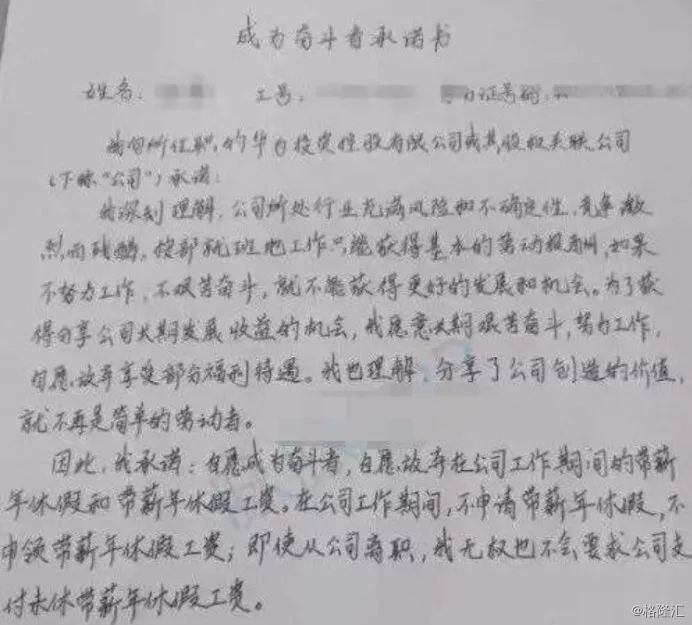 成为奋斗者承诺书
姓名： 工号： 证号码：
我向所任职的华为投资控股有限公司或其股权关联公司
（下称“公司”）承诺：
我深刻理解，公司所处行业充满风险和不确定性，竞争激
烈而残酷，按部就班地工作只能获得基本的劳动报酬，如果
不努力工作，不艰苦奋斗，就不能获得更好的发展和机会。为了获
得分享公司长期发展收益的机会，我愿意长期艰苦奋斗，努力工作，
自愿放弃享受部分福利待遇。我也理解，分享了公司创造的价值，
就不再是简单的劳动者。
因此，我承诺：自愿成为奋斗者，自愿放弃在公司工作期间的带薪
年休假和带薪年休假工资。在公司工作期间，不申请带薪年休假，不
申领带薪年休假工资；即使从公司离职，我无权也不会要求公司支
付未休带薪年休假工资。
@格隆汇